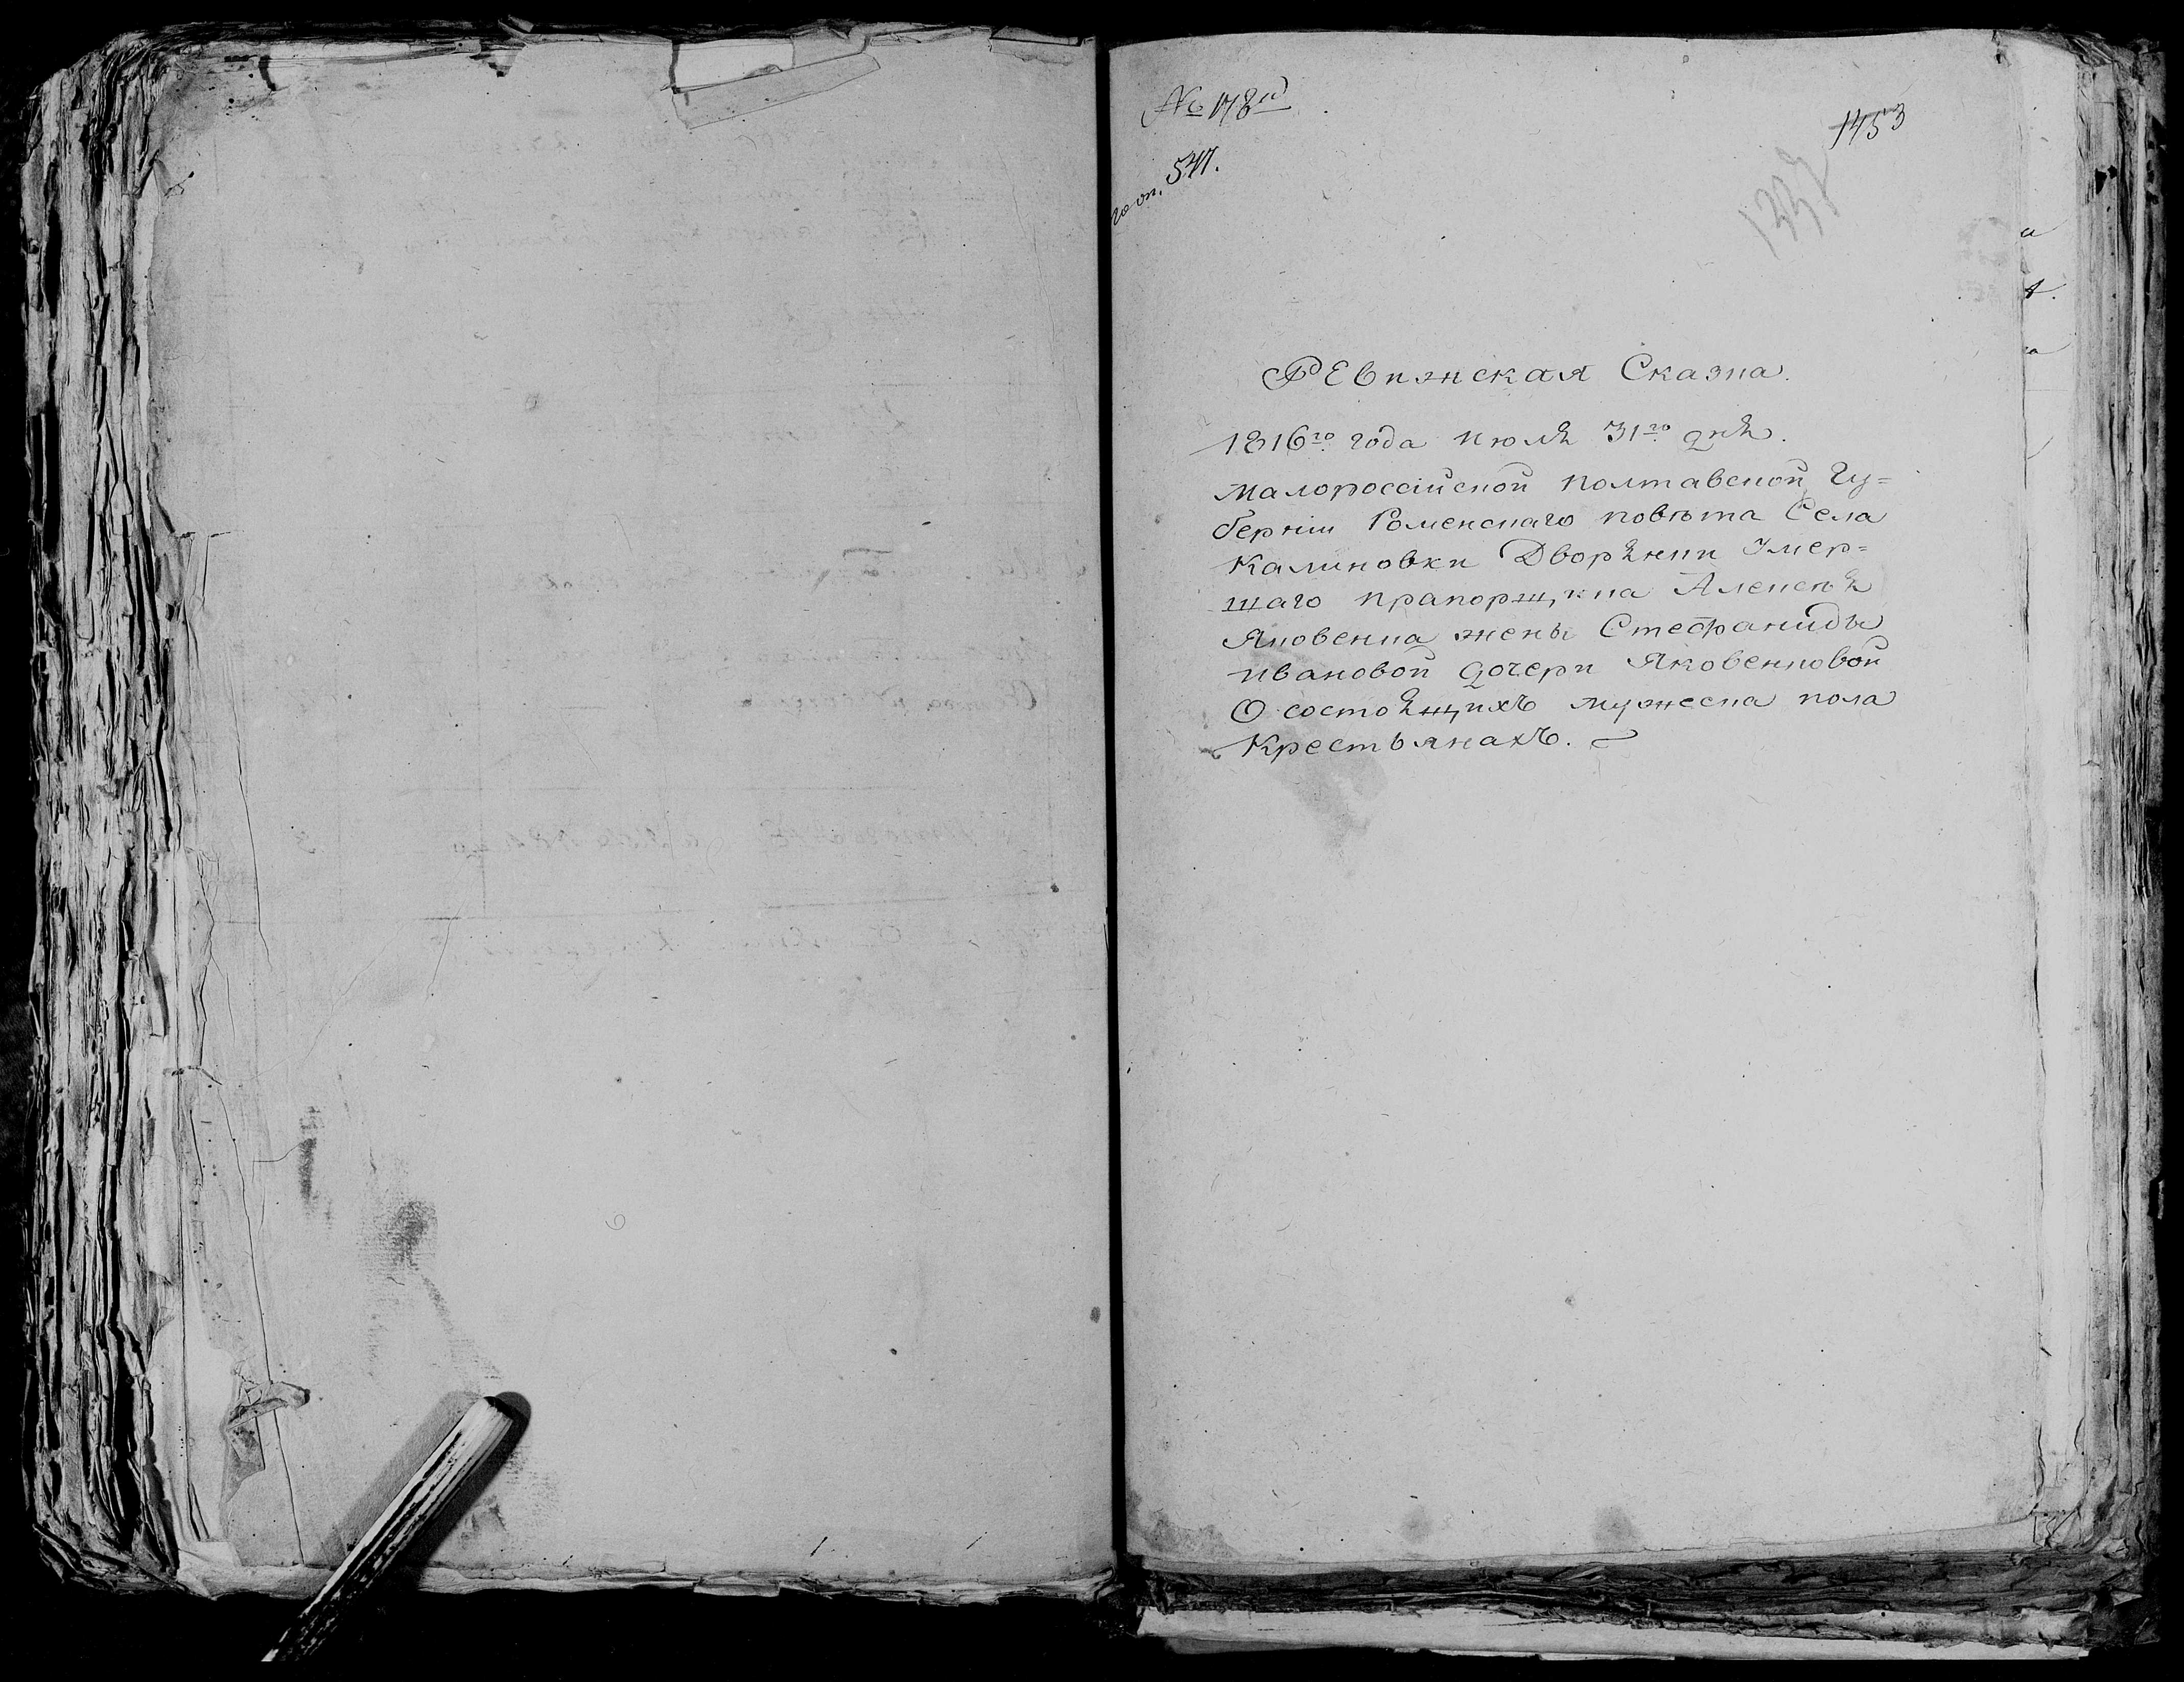 № 178й
по оп. 547.
1453
1337
Ревижская Сказка.
1816го года июля 31го дня.
Малороссійской полтавской Гу=
берніи Роменскаго повѣта Села
Калиновки Дворянки Умер=
шаго прапорщика Алексея
Яковенка жены Стефаниды
ивановой дочери Яковенковой
О состоящихъ мужеска пола
Крестьянахъ.